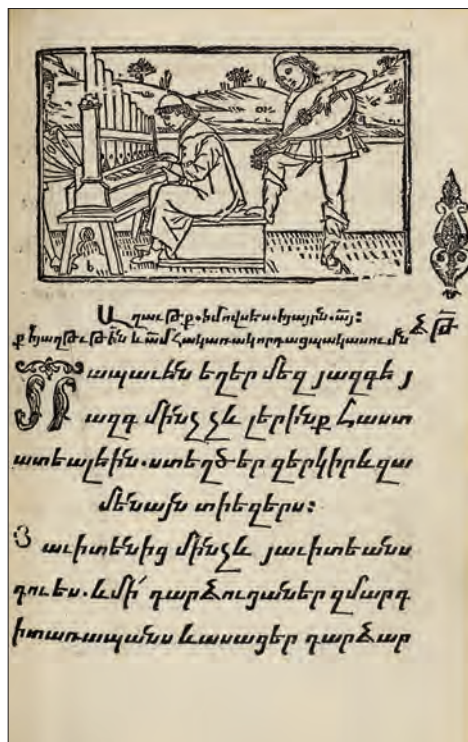 Աղաւթ.ք.իմովսես.իայրն.ա՟յ:
և ա՟մ Հակառակորդացպակասումն Ձ Թ
Տր ապաւէն եղեր մեզ յազգէ յ
ազգ մինչ չև լերինք Հաստ
ատեալ էին.ստեղծեր զերկիր և զա
մենայն տիեզերս:
Յաւիտենից մինչև յաւիտեանս
դու ես.և մի՛ դարձուցաներ զմարդ
ի տառապանս և ասացեր դարձար